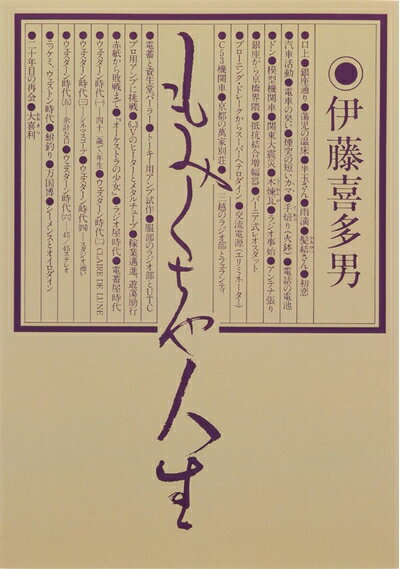 ◉伊藤喜多男
●口上●銀座通り●蕩児の温床●半玉さん●雨滴●髪結さん●初恋
汽車活動●電車の臭い●煙突の短いカマ●手焙り(火鉢)●電話の電池
●ドン●模型機関車●関東大震災●木煉瓦●ラジオ事始●アンテナ張り
銀座から京橋界隈●抵抗結合増幅器●バーニア式レオスタット
●ブローニング・ドレークからスーパーヘテロダイン●交流電源(エリミネーター)
●C53機関車●京都の萬家別荘●三越のラジオ部とウェランティ
もみくちゃ人生
●電蓄と資生堂パーラー●トーキー用アンプ試作●服部のラジオ部とUTC
プロ用アンプに挑戦●6.3Vのヒーターとメタルチューブ●稼業邁進、遊蕩励行
●赤紙から敗戦まで●『オーケストラの少女』●ラジオ屋時代●電蓄屋時代
●ウェスターン時代(一)―四十二歳と一年生●ウェスターン時代(二)CLAIRE DE LUNE
●ウェスターン時代(三)―シネマスコープ●ウェスターン時代(四)―スタジオ廻り
ウェスターン時代(五)●ウェスターン時代(六) 45 45ステレオ
●ニッケミ、ウエストン時代●鮒釣り●万国博●シーメンスとオイロダイン
●二十年目の再会●大喜利